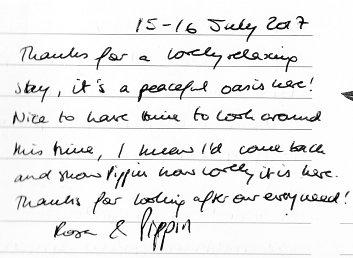 15-16 July 2017
Thanks for a lovely relaxing
stay, it's a peaceful oasis here!
Nice to have time to look around
this time, I knew I'd come back
and show Pippin how lovely it is here.
Thanks for looking after our every need!
Rosa & Pippin